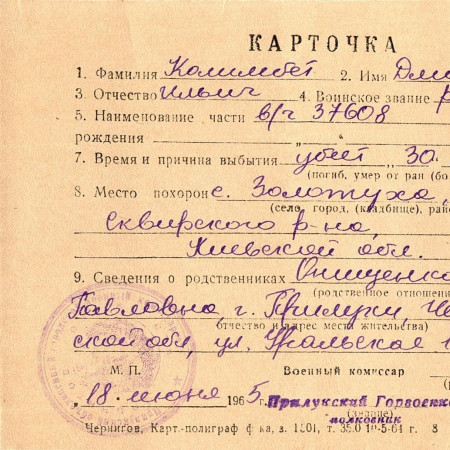 КАРТОЧКА
1. Фамилия Колимбет 2. Имя Дми
3. Отчество Ильич 4. Воинское звание
5. Наименование части в/ч 37608
рождения „ “
7. Время и причина выбытия убит „30
(погиб, умер от ран (бо
8. Место похорон с. Золотуха,
(село, город, (кладбище), рай
Сквирского р-на,
Киевской обл.
9. Сведения о родственниках Онищенко
(родственное отношени
Павловна, г. Прилуки, Че
отчество и адрес места жительства)
ской обл, ул. Уральская
М. П. Военный комиссар
„18“ июня 1965 г. Прилукский Горвоенко
(звание)
полковник
Чернигов, Карт.-полиграф ф-ка, з. 1201, т. 35.0 5-64 г. 8